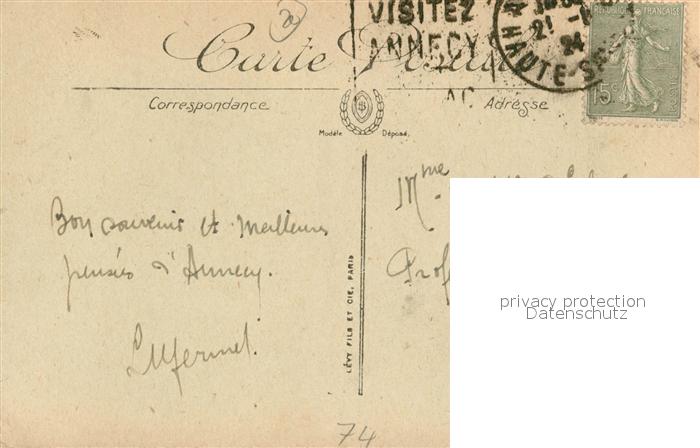 VISITEZ
ANNECY
21 -1
24
HAUTE-S
REPUBLIQUE FRANCAISE
15c
Carte Postale
Correspondance
Adresse
Modèle Déposé
Mme
Bon souvenir et meilleures
pensées d'Annecy.
Prof
LÉVY FILS ET CIE, PARIS
74
privacy protection
Datenschutz